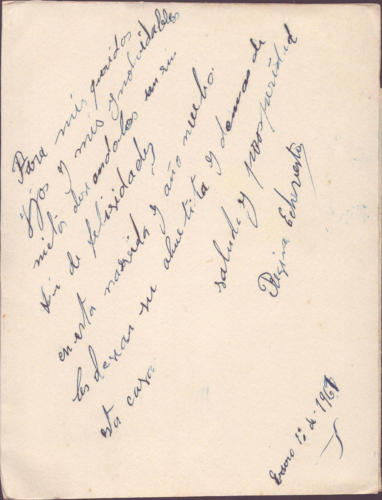 Para mis queridos
ijos y mis ynolvidables
nietos deseandoles un sin
sin de felisidades
en esta navida y año nuebo
les desean su abuelita y demas de
esta casa
salud y prosperidad
Regina Echeverta
Enero 1º de 1961